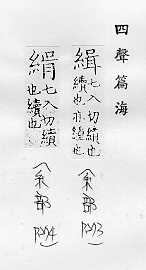 四聲篇海
緝七入切績也
續也亦
絹七入切績
也續也
糸部
糸部